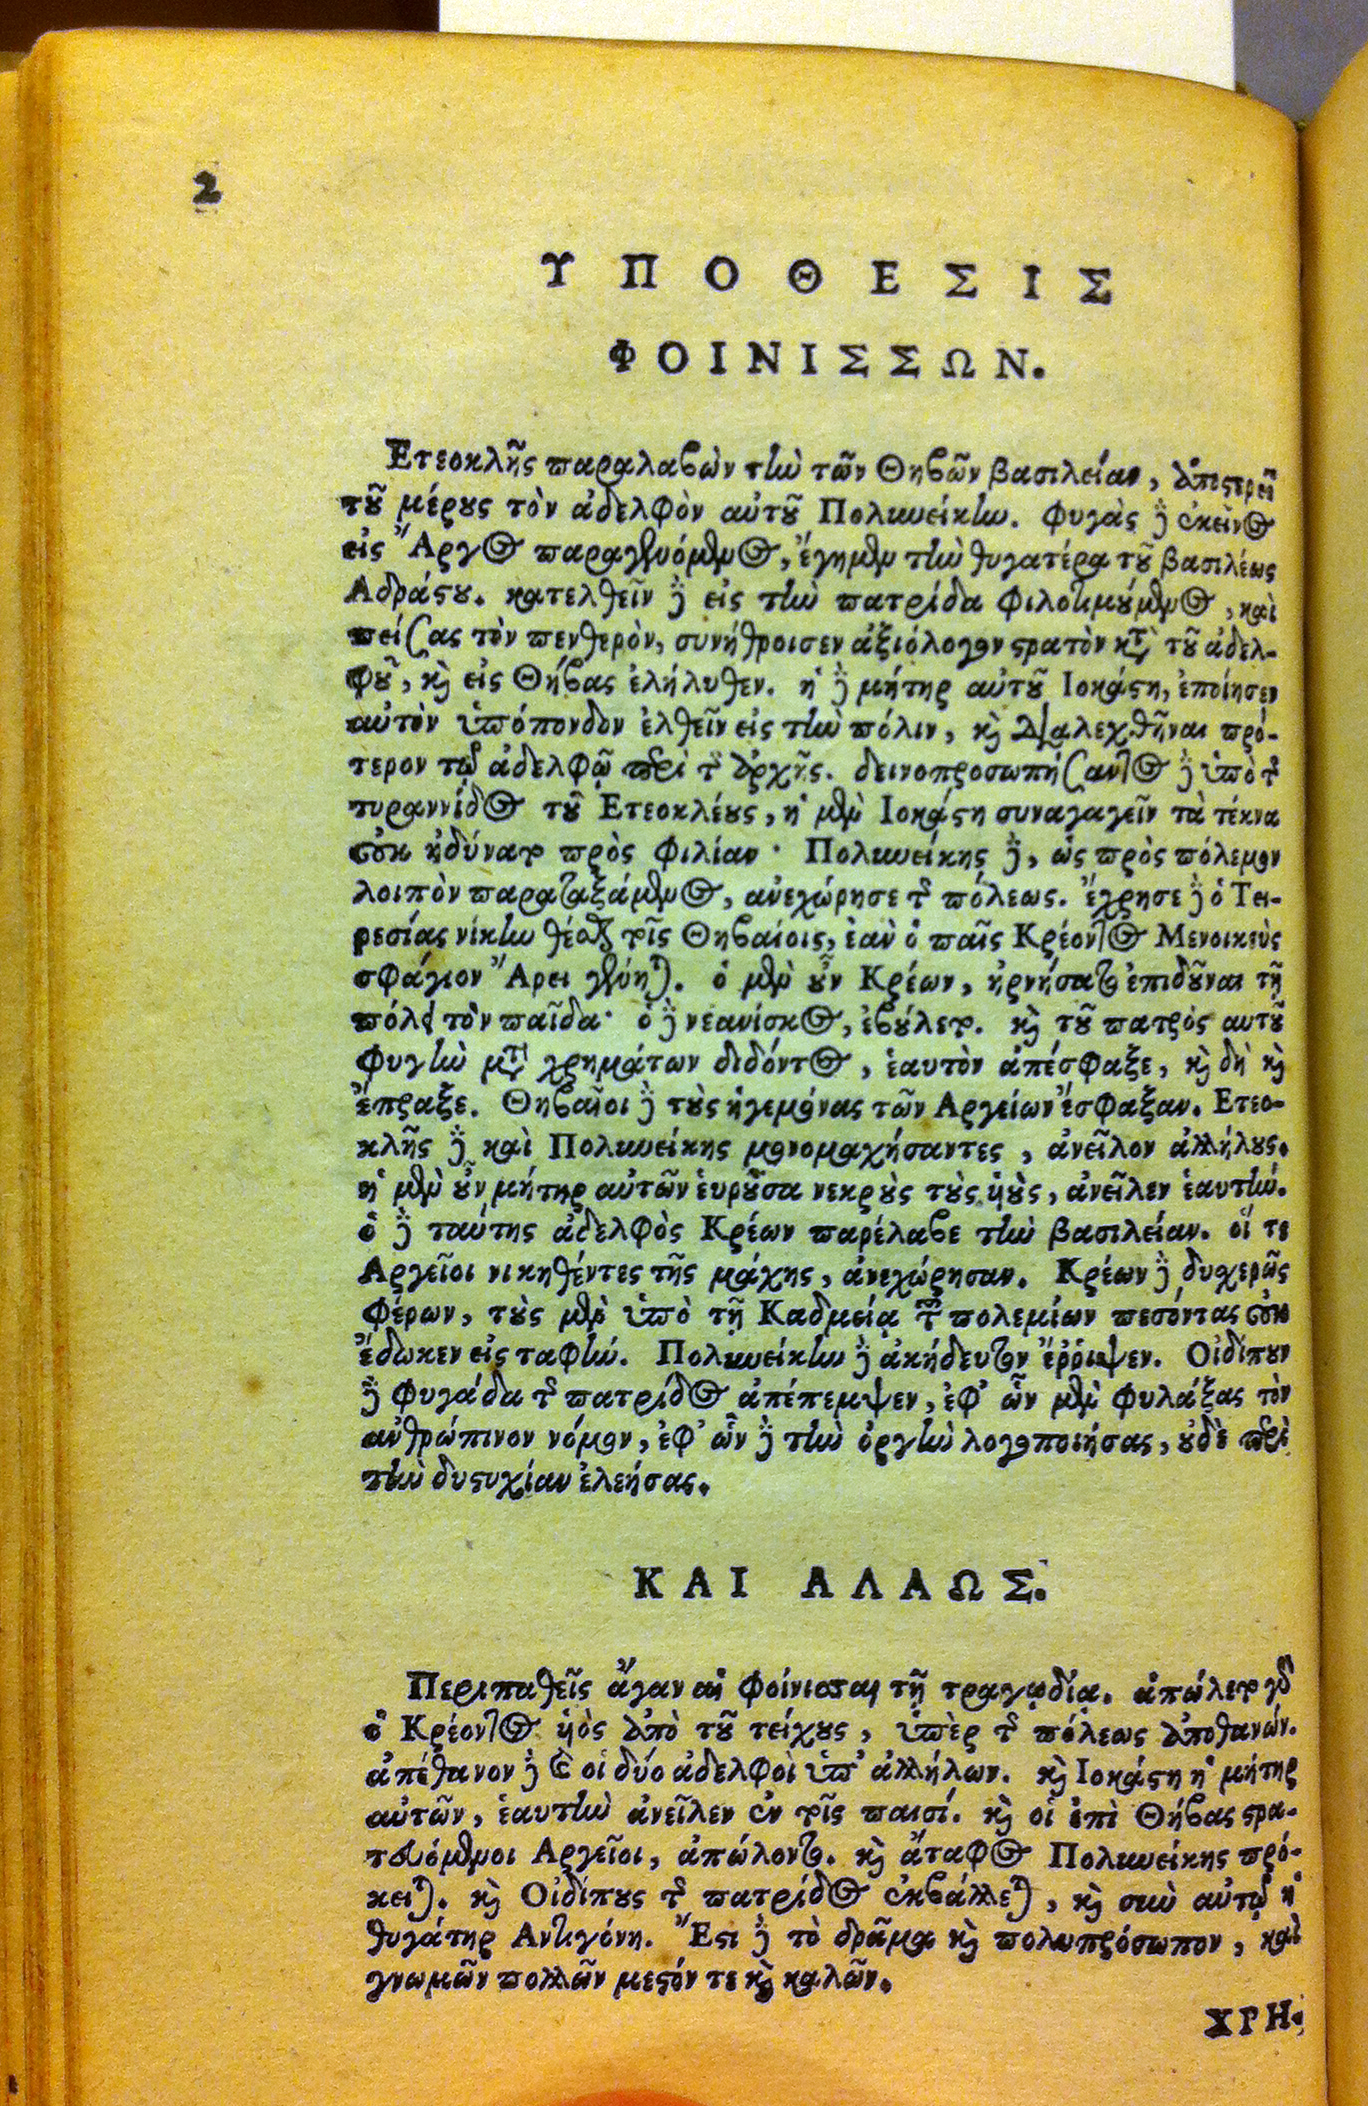 2
ΥΠΟΘΕΣΙΣ
ΦΟΙΝΙΣΣΩΝ.
Ετεοκλῆς παραλαβὼν τὴν τῶν Θηβῶν βασιλείαν, ἀποστερεῖ
τοῦ μέρους τὸν ἀδελφὸν αὐτοῦ Πολυνείκην. φυγὰς δὲ ἐκεῖνος
εἰς Ἄργος παραγενόμενος, ἔγημεν τὴν θυγατέρα τοῦ βασιλέως
Αδράστου. κατελθεῖν δὲ εἰς τὴν πατρίδα φιλοτιμούμενος, καὶ
πείσας τὸν πενθερὸν, συνήθροισεν ἀξιόλογον στρατὸν κατὰ τοῦ ἀδελ-
φοῦ, καὶ εἰς Θήβας ἐλήλυθεν. ἡ δὲ μήτηρ αὐτοῦ Ιοκάστη, ἐποίησεν
αὐτὸν ὑπόπονδον ἐλθεῖν εἰς τὴν πόλιν, καὶ διαλεχθῆναι πρό-
τερον τῷ ἀδελφῷ περὶ τῆς ἀρχῆς. δεινοπροσωπήσαντος δὲ ὑπὸ τῆς
τυραννίδος τοῦ Ετεοκλέους, ἡ μὲν Ιοκάστη συναγαγεῖν τὰ τέκνα
οὐκ ἠδύνατο πρὸς φιλίαν· Πολυνείκης δὲ, ὡς πρὸς πόλεμον
λοιπὸν παραταξάμενος, ἀνεχώρησε τῆς πόλεως. ἔχρησε δὲ ὁ Τει-
ρεσίας νίκην ἔσεσθαι τοῖς Θηβαίοις, ἐὰν ὁ παῖς Κρέοντος Μενοικεὺς
σφάγιον Ἄρει γένηται. ὁ μὲν οὖν Κρέων, ἠρνήσατο ἐπιδοῦναι τῇ
πόλει τὸν παῖδα· ὁ δὲ νεανίσκος, ἐβούλετο. καὶ τοῦ πατρὸς αυτοῦ
φυγὴν μετὰ χρημάτων διδόντος, ἑαυτὸν ἀπέσφαξε, καὶ δὴ καὶ
ἔπραξε. Θηβαῖοι δὲ τοὺς ἡγεμόνας τῶν Αργείων ἔσφαξαν. Ετεο-
κλῆς δὲ καὶ Πολυνείκης μονομαχήσαντες, ἀνεῖλον ἀλλήλους.
ἡ μὲν οὖν μήτηρ αὐτῶν εὑροῦσα νεκροὺς τοὺς υἱοὺς, ἀνεῖλεν ἑαυτήν.
ὁ δὲ ταύτης ἀδελφὸς Κρέων παρέλαβε τὴν βασιλείαν. οἵ τε
Αργεῖοι νικηθέντες τῆς μάχης, ἀνεχώρησαν. Κρέων δὲ δυχερῶς
φέρων, τοὺς μὲν ὑπὸ τῇ Καδμείᾳ τῶν πολεμίων πεσόντας οὐκ
ἔδωκεν εἰς ταφήν. Πολυνείκην δὲ ἀκήδευτον ἔῤῥιψεν. Οἰδίπουν
δὲ φυγάδα τῆς πατρίδος ἀπέπεμψεν, ἐφ' ὧν μὲν φυλάξας τὸν
ἀνθρώπινον νόμον, ἐφ' ὧν δὲ τὴν ὀργὴν λογοποιήσας, οὐδὲ περὶ
τὴν δυστυχίαν ἐλεήσας.
ΚΑΙ ΑΛΛΩΣ.
Περιπαθεῖς ἄγαν αἱ Φοίνισσαι τῇ τραγῳδίᾳ. ἀπώλετο γὰρ
ὁ Κρέοντος υἱὸς ἀπὸ τοῦ τείχους, ὑπὲρ τῆς πόλεως ἀποθανών.
ἀπέθανον δὲ καὶ οἱ δύο ἀδελφοὶ ὑπ' ἀλλήλων. καὶ Ιοκάστη ἡ μήτηρ
αὐτῶν, ἑαυτὴν ἀνεῖλεν ἐν τοῖς παισί. καὶ οἱ ἐπὶ Θήβας στρα-
τευόμενοι Αργεῖοι, ἀπώλοντο. καὶ ἄταφος Πολυνείκης πρό-
κειται. καὶ Οἰδίπους τῆς πατρίδος ἐκβάλλεται, καὶ σὺν αὐτῷ ἡ
θυγάτηρ Αντιγόνη. Ἔστι δὲ τὸ δρᾶμα καὶ πολυπρόσωπον, καὶ
γνωμῶν πολλῶν μεστόν τε καὶ καλῶν.
ΧΡΗ-